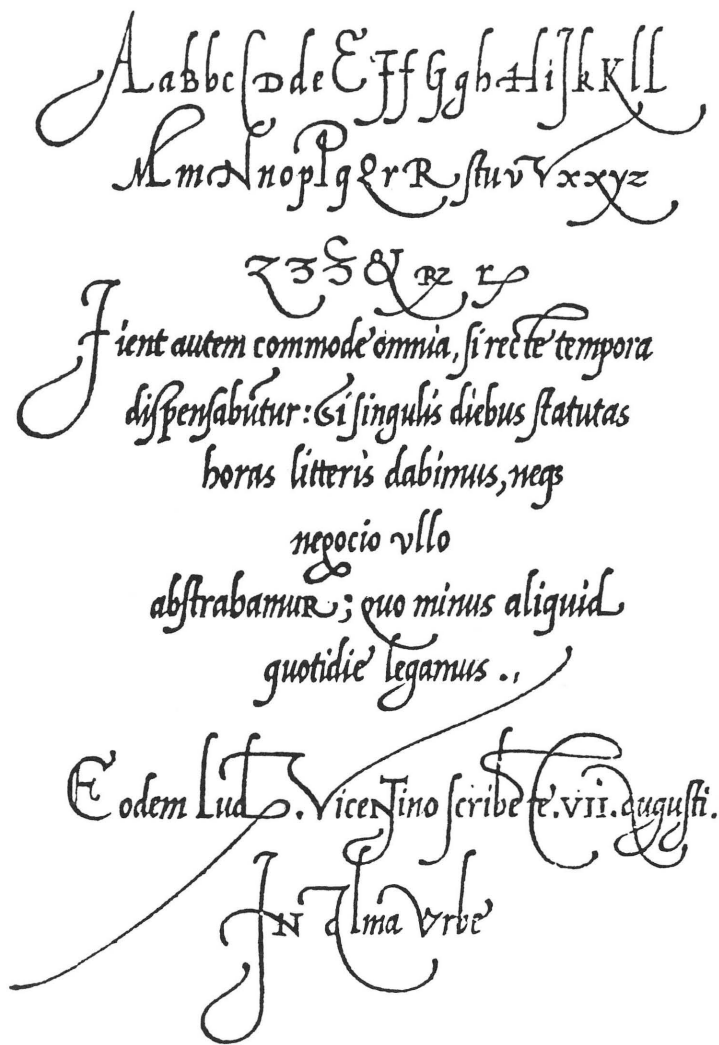 AaBbcCDdeEFfGghHiJkKlL
MmNnopPqQrRſtuvVxxyz
&
Fient autem commode omnia, ſi recte tempora
diſpenſabūtur: & ſi ſingulis diebus ſtatutas
horas litteris dabimus, neqꝫ
negocio vllo
abſtrahamuR; quo minus aliquid
quotidie legamus .,
Eodem Lud. ViceNTino ſcribēte .VII. Auguſti.
IN Alma Vrbe